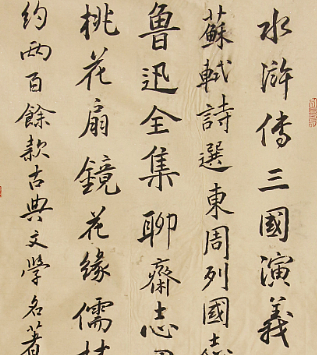 水滸傳三國演義
蘇軾詩選東周列國志
魯迅全集聊齋志異
桃花扇鏡花緣儒林
約兩百餘款古典文學名著